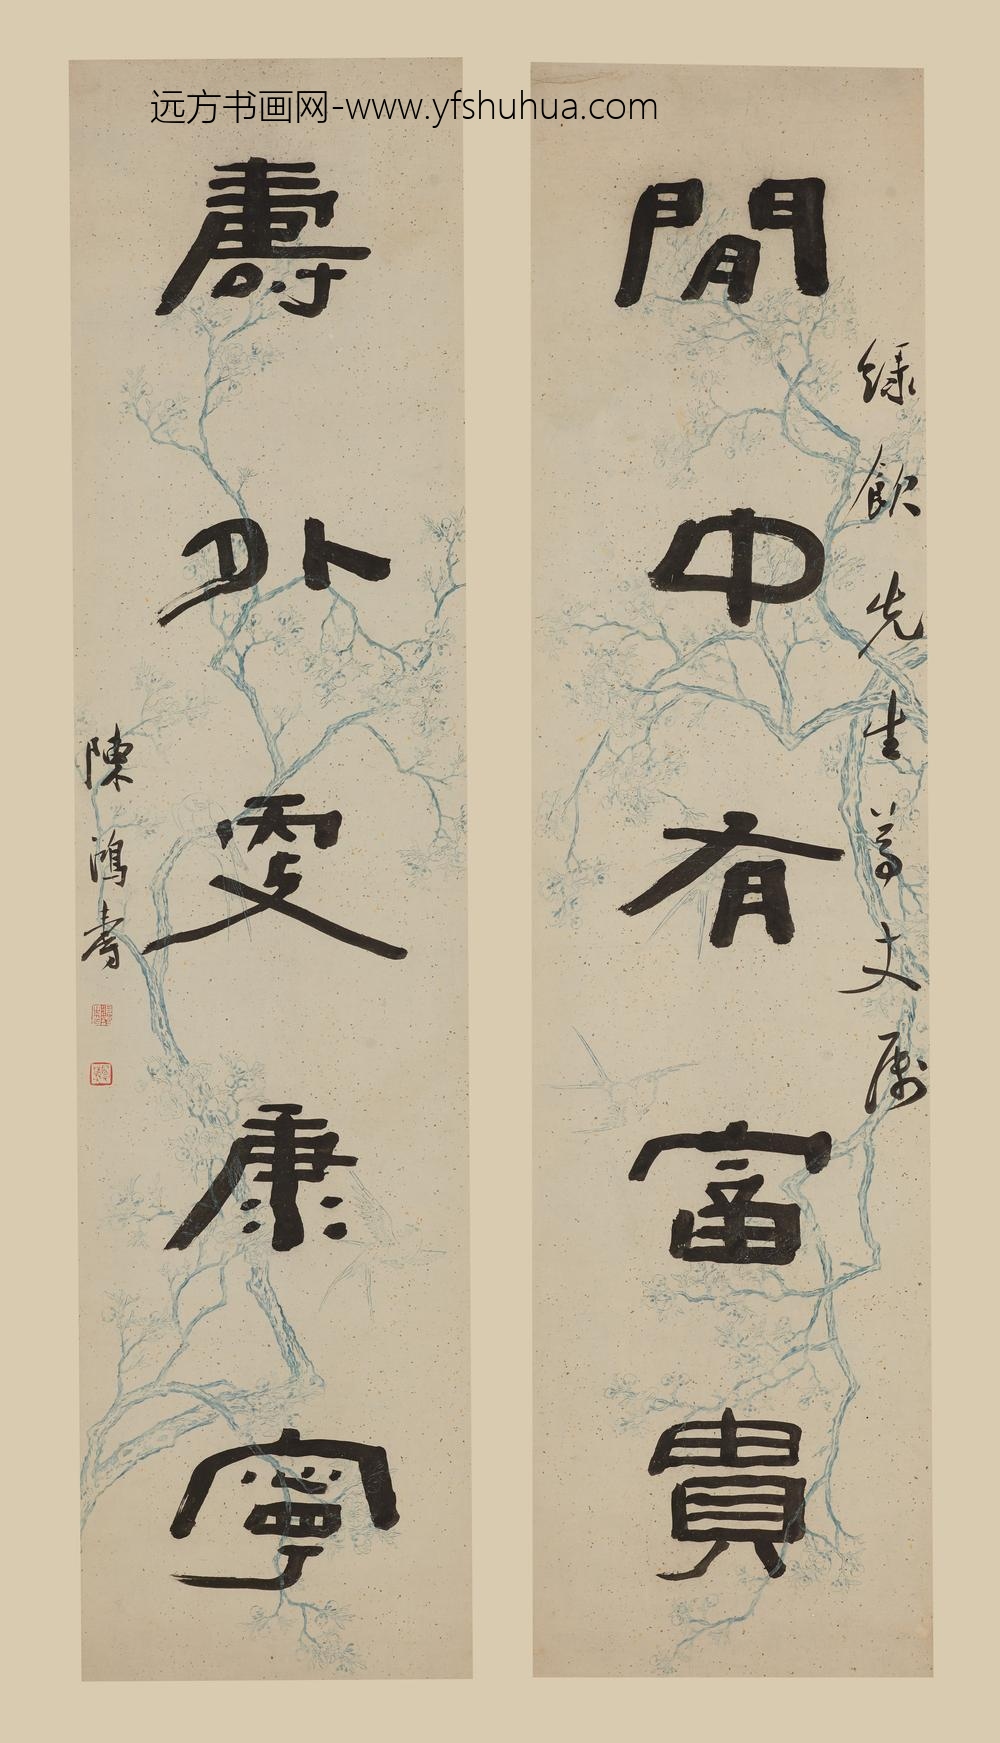 远方书画网-www.yfshuhua.com
綠飲先生尊丈属
閒中有富貴
壽外更康寧
陳鴻壽